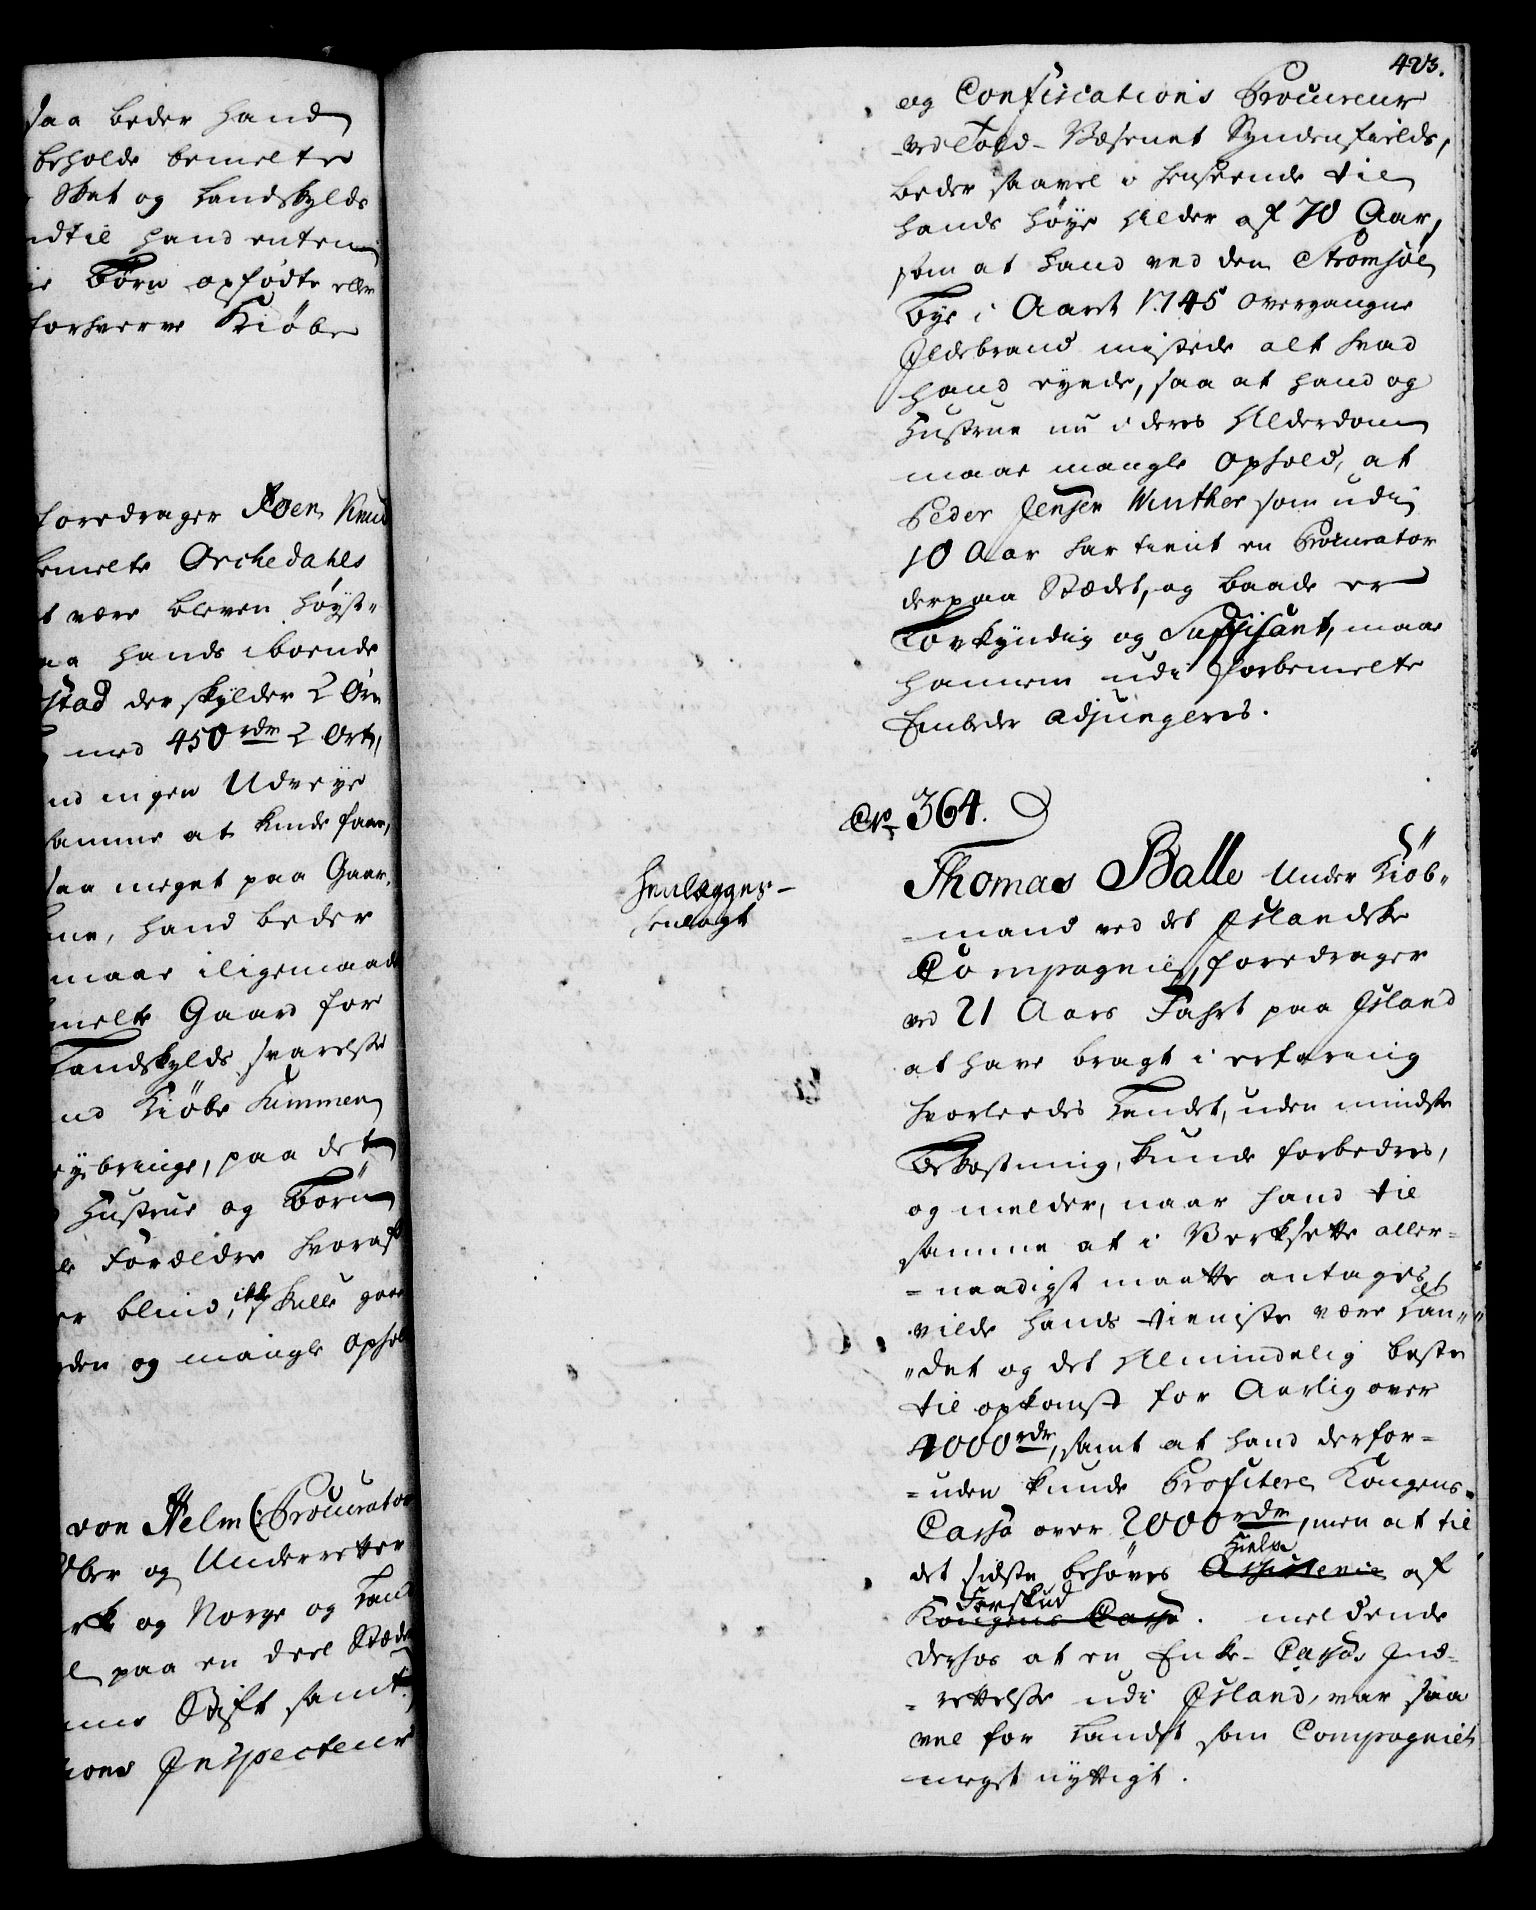 saa beder hand
beholde bemelte
Skat og Landskylds
indtil hand enten
Børn opfødte eller
forhverve Kiøbe
foredrager Joen Knud
bemelte Orchedahls
t være bleven høyst„
paa hands iboende
stad der skylder 2 Ører
med 450 rdr 2 Ort,
ingen Udveye
samme at kunde faae,
saa meget paa Gaar„
hand beder
maae iligemaade
melte Gaard for
Landskylds svarelse
Kiøbe Summen
bringe, paa det
Hustrue og Børn
Forældre hvoraf
er blind, ikke skulle gaae
og mangle Ophold
von Helm (: Procurator
Over og Underretter
og Norge og
paa en deel Stæder
Stift samt
Inspecteur
423.
og Confiscations Procureur
ved Told-Væsenet Syndenfields,
beder saavel i henseende til
hands høye Alder af 70 Aar,
som at hand ved den Strømsøe
Bye i Aaret 1745 overgangne
Ildebrand mistede alt hvad
hand eyede, saa at hand og
Hustrue nu i deres Alderdom
maae mangle Ophold, at
Peder Jensen Winther som udi
10 Aar har tient en Procurator
derpaa Stædet, og baade er
Lovkyndig og Suffisant, maae
hannem udi forbemelte
Embeder adjungeres.
No 364.
Henlægges-
henlagt
Thomas Balle Under Kiøb„
=mand ved det Islandske
Compagnie, foredrager
ved 21 Aars Fahrt paa Island
at have bragt i erfaring
hvorleedes Landet, uden mindste
Bekostning, kunde forbedres,
og melder, naar hand til
samme at i Verksette aller=
=naadigst maatte antages,
vilde hands tieniste være Lan„
„det og det Almindelig beste
til opkomst for Aarlig over
4000 rdr, samt at hand derfor=
=uden kunde Profitere Kongens
Cassa over 2000 rdr, men at til
det sidste behøves Assistence Hielp af
Kongens Cassa Forskud. meldende
derhos at en Enke-Casses Ind=
=rettelse udi Island, var saa
vel for Landet som Compagniet
meget nyttigt.